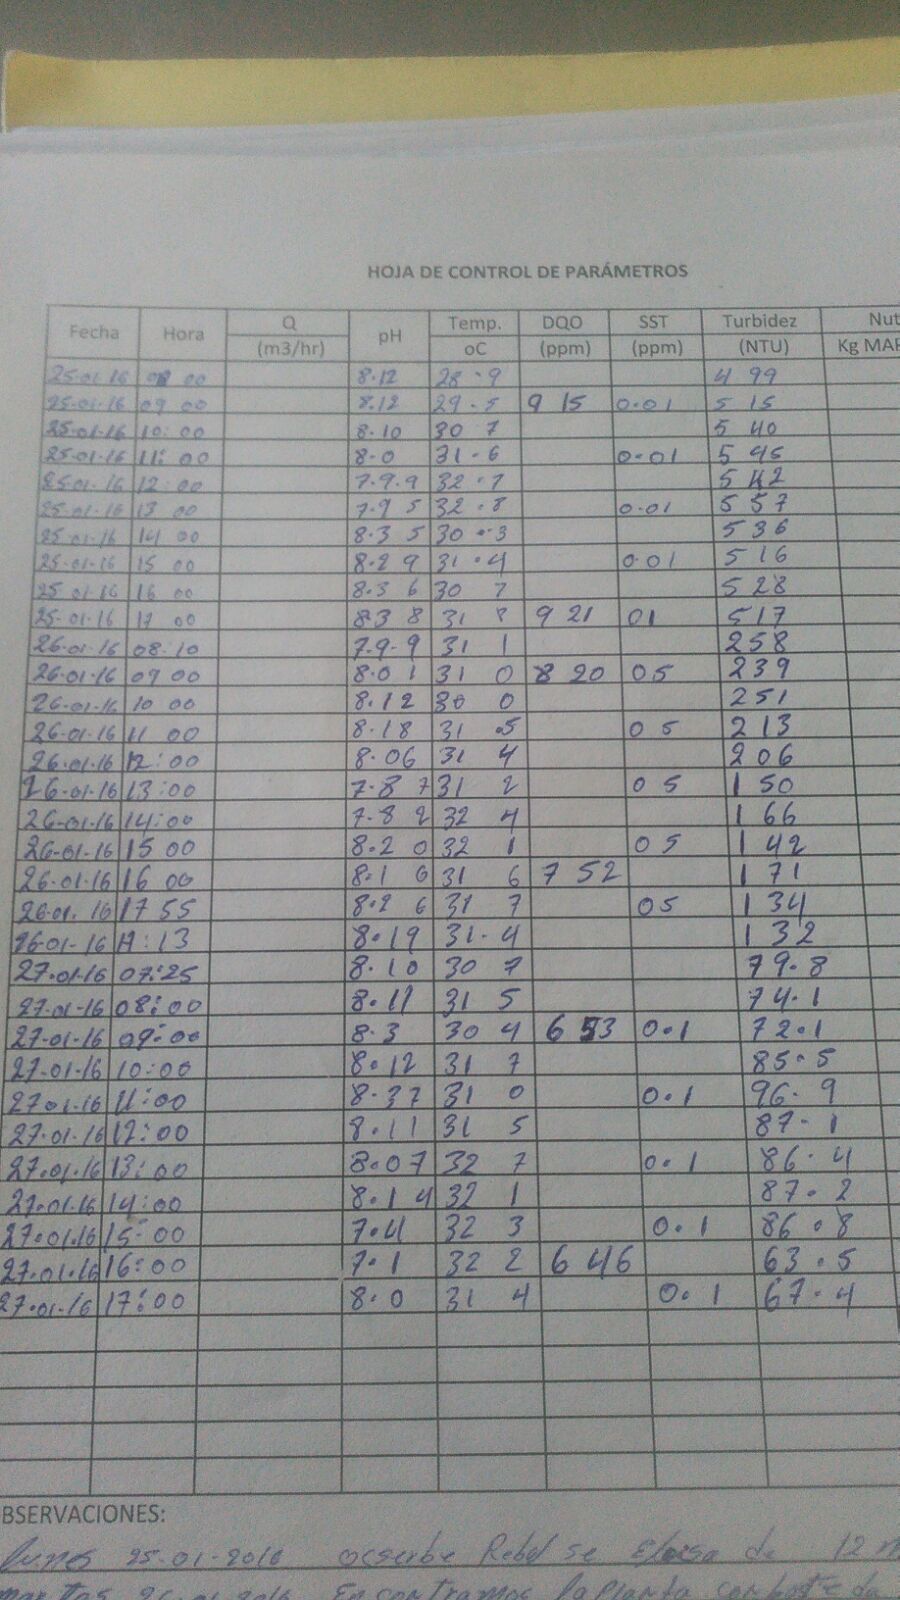 HOJA DE CONTROL DE PARÁMETROS
Fecha Hora Q pH Temp. DQO SST Turbidez Nut
(m3/hr) oC (ppm) (ppm) (NTU) Kg MAP
25-01-16 08 00 8.12 28.9 4 99
25-01-16 09 00 8.12 29.5 9 15 0.01 5 15
25-01-16 10:00 8.10 30 7 5 40
25-01-16 11:00 8.0 31.6 0.01 5 45
25-01-16 12:00 7.9.9 32.7 5 42
25-01-16 13 00 7.9 5 32.8 0.01 5 57
25-01-16 14 00 8.3 5 30.3 5 36
25-01-16 15 00 8.2 9 31.4 0 01 5 16
25 01-16 16 00 8.3 6 30 7 5 28
25-01-16 17 00 8 3 8 31 9 21 01 517
26-01-16 08:10 7.9.9 31 1 258
26-01-16 09 00 8.0 1 31 0 8 20 0 5 239
26-01-16 10 00 8.12 30 0 251
26-01-16 11 00 8.18 31 .5 0 5 2 13
26-01-16 12:00 8.06 31 4 206
26-01-16 13:00 7.8 7 31 2 0 5 1 50
26-01-16 14:00 7.8 2 32 4 1 66
26-01-16 15 00 8.2 0 32 1 0 5 1 42
26-01-16 16 00 8.1 6 31 6 7 52 1 71
26-01-16 17 55 8.2 6 31 7 0 5 1 34
26-01-16 :13 8.19 31.4 1 32
27-01-16 07:25 8.10 30 7 79.8
27-01-16 08:00 8.11 31 5 74.1
27-01-16 09:00 8.3 30 4 6 53 0.1 72.1
27-01-16 10:00 8.12 31 7 85.5
27-01-16 11:00 8.37 31 0 0.1 96.9
27-01-16 12:00 8.11 31 5 87.1
27.01-16 13:00 8.07 32 7 0.1 86.4
27.01-16 14:00 8.1 4 32 1 87.2
27.01.16 15:00 7.4 32 3 0.1 86.8
27.01.16 16:00 7.1 32 2 6 46 63.5
27.01-16 17:00 8.0 31 4 0.1 67.4
BSERVACIONES:
lunes 25-01-2016 Rebel se de 12
26-01-2016 Encontramos la planta